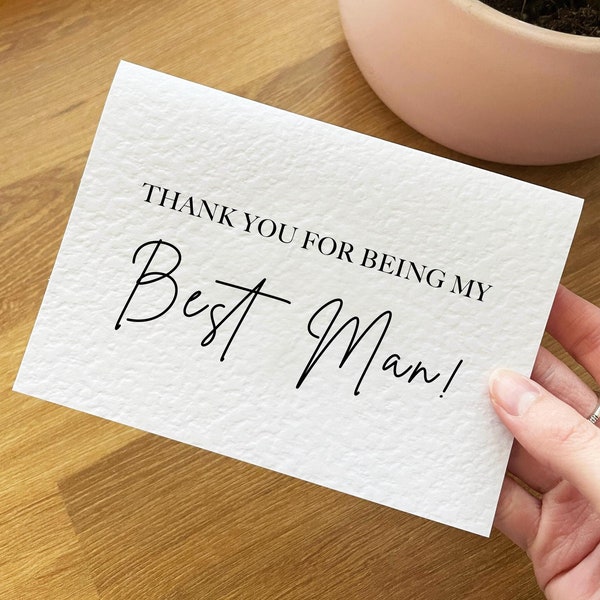 THANK YOU FOR BEING MY
Best Man!